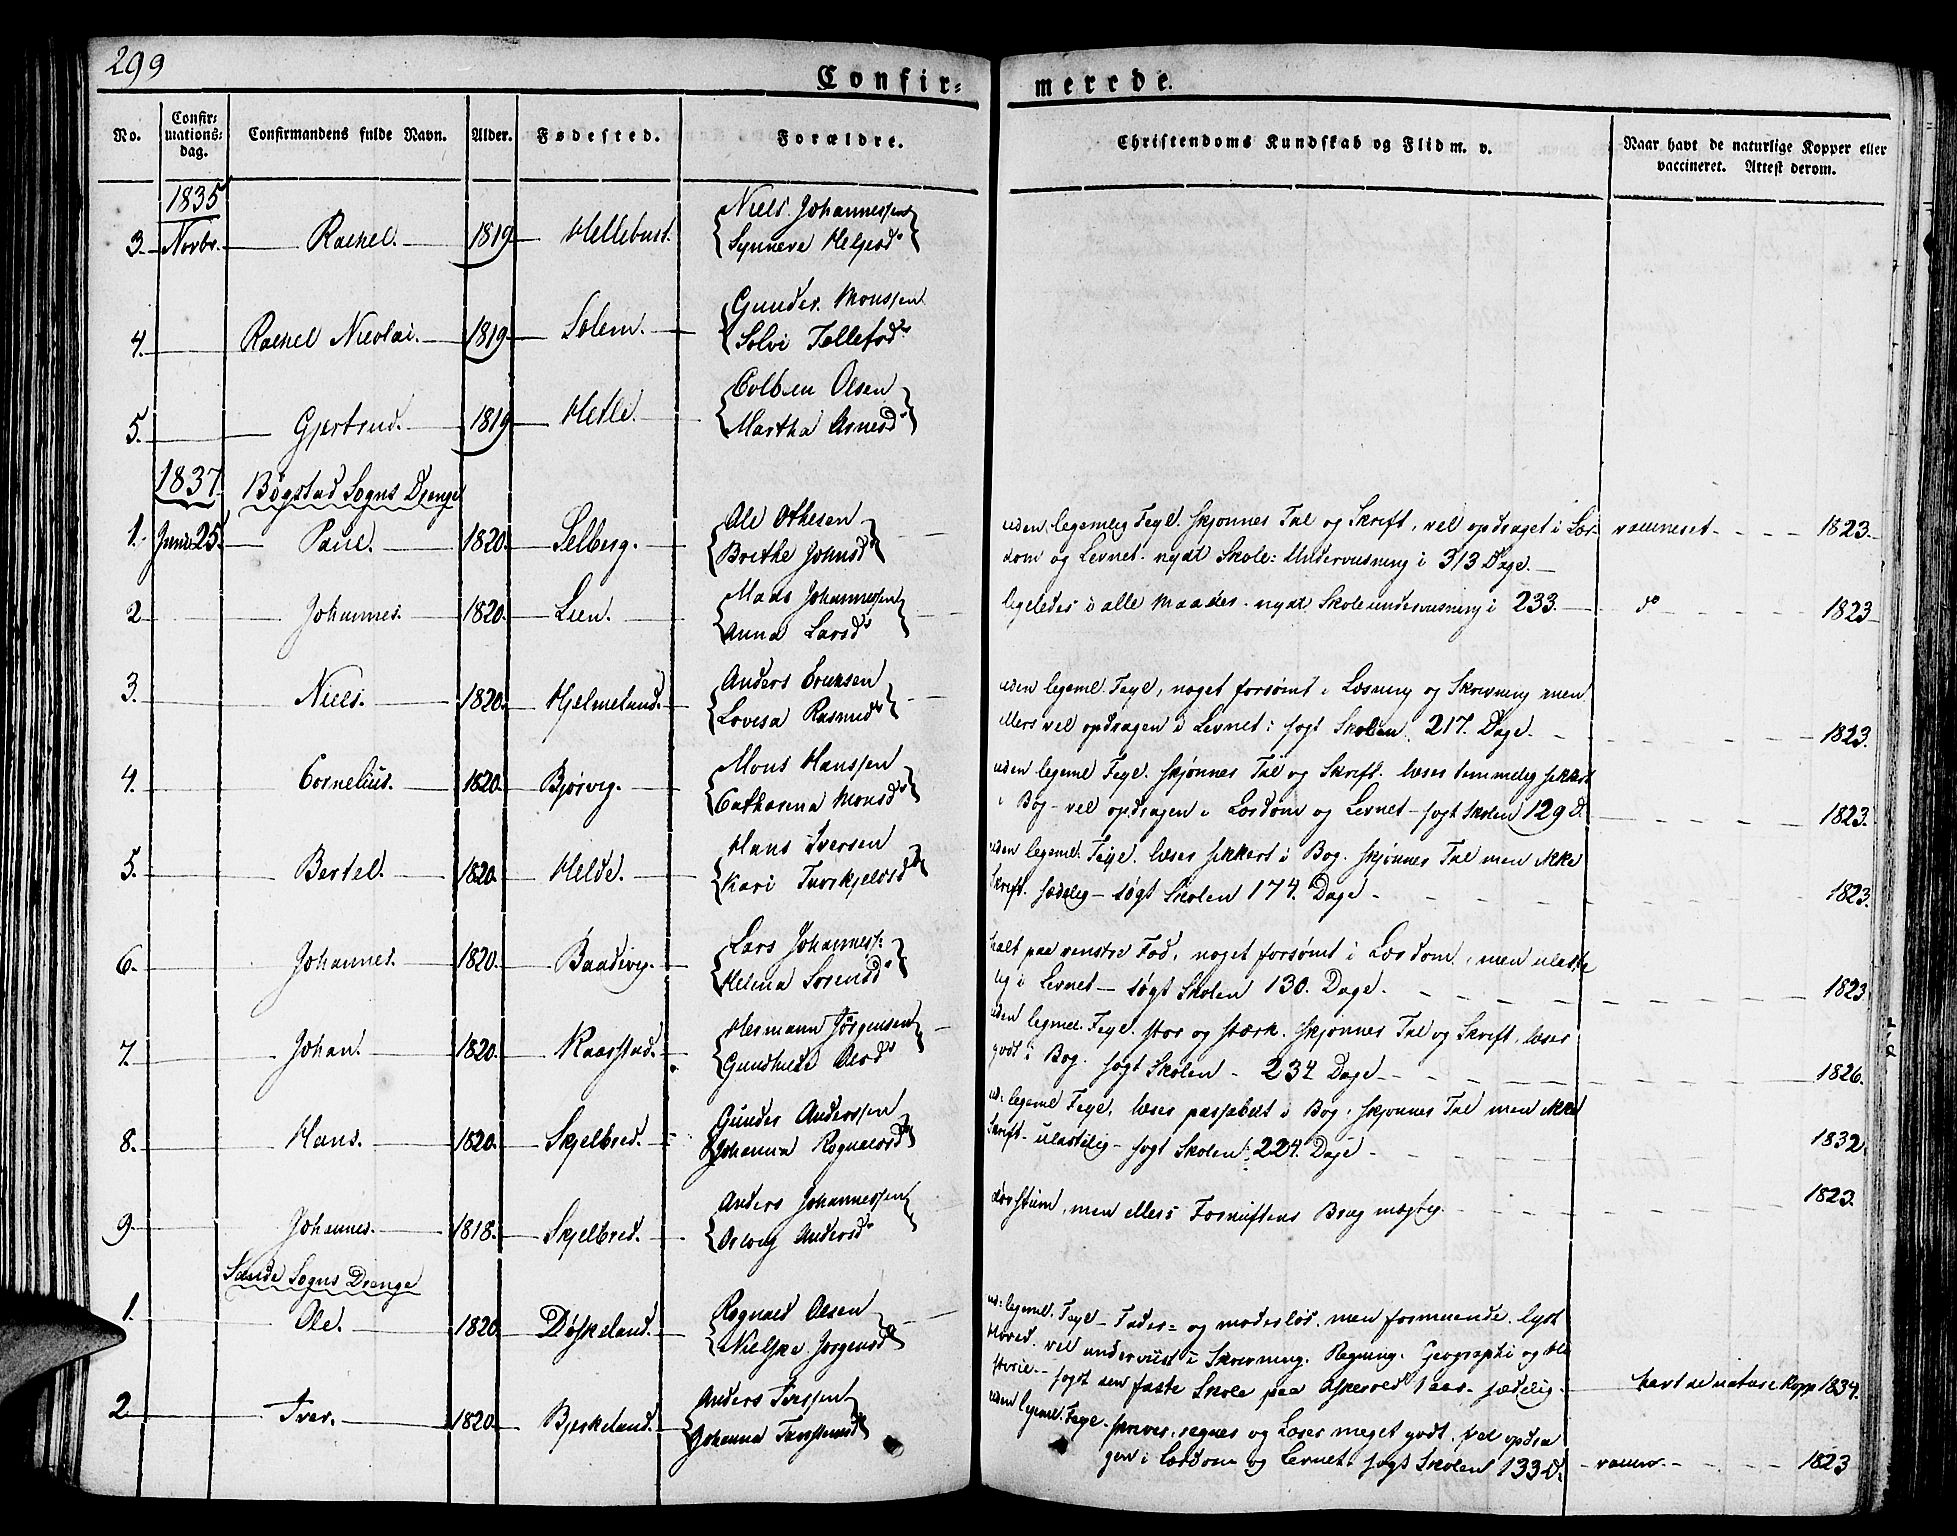 299
Confir= merede.
No. Confir= mations= dag. Confirmandens fulde Navn. Alder. Fødested. Forældre. Christendoms Kundskab og Flid m. v. Naar havt de naturlige Kopper eller vaccineret. Attest derom.
1835
3. Novbr. Rachel. 1819 Hellebust. Niels Johannessen
Synneve Helgesd.
4. Rachel Nicolai. 1819 Solem. Gunder Monssen
Solvi Tollefsd.
5. Gjertrud. 1819 Hetle. Colben Olsen
Martha Arnesd.
1837 Bøgstad Sogns Drenge
1. Juni 25. Paul. 1820. Selberg. Ole Othesen uden legemlig Feyl. skjonnes Tal og Skrift, vel opdraget i Lær- vaccineret 1823.
Brethe Johnsd. dom og Levnet. nydt Skole: Underviisning i 313 Dage.
2 Johannes. 1820. Lien. Mads Johannessen ligeledes i alle Maader. nydt Skoleunderviisning i 233. do 1823
Anna Larsd.
3. Niels. 1820. Hjelmeland. Anders Ericksen uden legeml. Feyl, noget forsømt i Læsning og Skrivning men
Lovisa Rasmusd. ellers vel opdragen i Levnet: søgt Skolen 217. Dage. 1823.
4. Cornelius. 1820. Bjørvig. Mons Hanssen uden legeml Feyl. skjønnes Tal og Skrift. læser temmelig sikkert
Catharina Monsd. i Bog - vel opdragen i Lærdom og Levnet - søgt Skolen 129 D. 1823.
5. Bertel. 1820. Helde. Hans Iversen uden legeml. Feyl. læser sikkert i Bog. skjønnes Tal men ikke
Kari Torkjelsd. Skrift. sædelig - søgt Skolen 174. Dage - 1823.
6. Johannes. 1820. Baadsvig. Lars Johanness: halt paa venstre Fod, noget forsømt i Lærdom, men ulaste
Helena Sorensd. lig i Levnet - søgt Skolen 130. Dage. 1823
7. Johan. 1820. Kaarstad. Hermann Jörgensen uden legmel. Feyl. stor og stærk. skjønnes Tal og Skrift, læser
Gundhilde Olsd. godt i Bog. søgt Skolen - 234 Dage 1826.
8. Hans. 1820. Skjelbred. Gunder Anderssen ud: legeml Feyl, læser passabelt i Bog, skjonnes Tal men ikke
Johanna Rognalsd. Skrift - ulastelig - søgt Skolen: 224. Dage - 1832.
9. Johannes. 1818. Skjelbred. Anders Johannessen døvstum, men ellers Fornuftens Brug mægtig 1823.
Orlaug Andersd.
Sande Sogns Drenge
1. Ole. 1820. Döskeland. Rognald Olsen ud: legeml. Feyl - Fader= og moderløs. men formuende. lyst
Nielske Jorgensd. Hoved. vel underviist i Skrivning. Regning. Geographi og Hi
storie - søgt den faste Skole paa Askevold 1 aar. sædelig. havt de naturl Kopp 1834.
2 Iver. 1820. Bjerkeland. Anders Iverssen uden legeml. Feyl - skriver, regner og Læser meget godt. vel opdra
Johanna Torsteind. gen i Lærdom og Levnet. søgt Skolen 133 D. vaccin. 1823